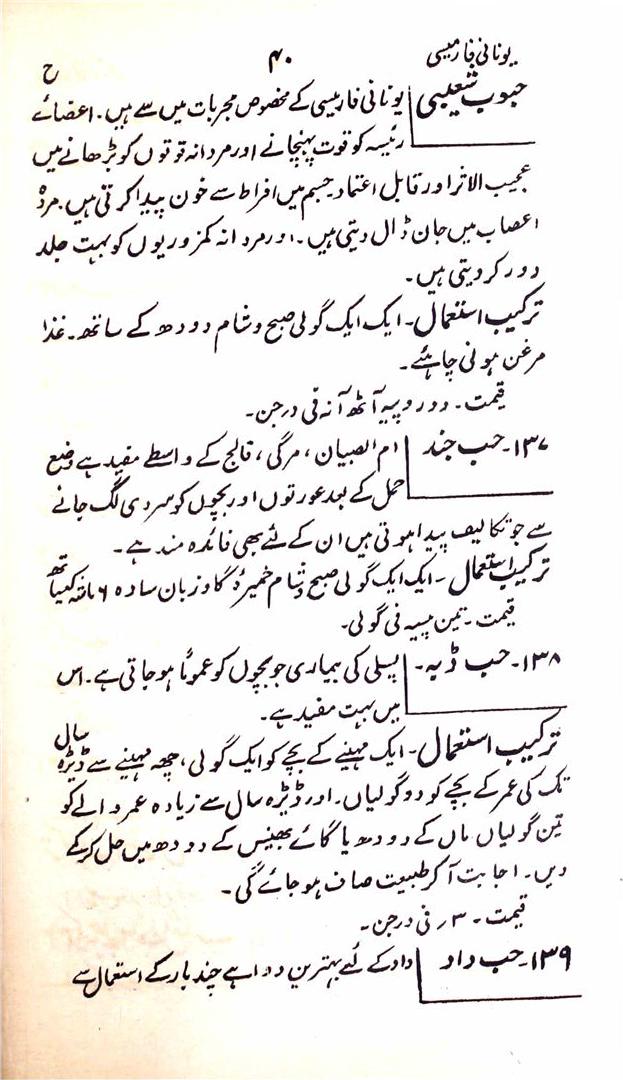 یونانی فارمیسی
۴۰
ح
حبوب شعیبی
یونانی فارمیسی کے مخصوص مجربات میں سے ہیں۔ اعضائے
رئیسہ کو قوت پہنچانے اور مردانہ قوتوں کو بڑھانے میں
عجیب الاثر اور قابل اعتماد جسم میں افراط سے خون پیدا کرتی ہیں۔ مردہ
اعصاب میں جان ڈال دیتی ہیں۔ اور مردانہ کمزوریوں کو بہت جلد
دور کر دیتی ہیں۔
ترکیب استعمال۔ ایک ایک گولی صبح و شام دودھ کے ساتھ۔ غذا
مرغن ہونی چاہئے۔
قیمت۔ دو روپیہ آٹھ آنہ فی درجن۔
۱۳۷۔ حب جند
ام الصبیان، مرگی، فالج کے واسطے مفید ہے وضع
حمل کے بعد عورتوں اور بچوں کو سردی لگ جانے
سے جو تکالیف پیدا ہوتی ہیں ان کے لئے بھی فائدہ مند ہے۔
ترکیب استعمال۔ ایک ایک گولی صبح و شام خمیرۂ گاؤ زبان سادہ ۶ ماشہ کیساتھ
قیمت۔ تین پیسہ فی گولی۔
۱۳۸۔ حب ڈبہ۔
پسلی کی بیماری جو بچوں کو عموماً ہو جاتی ہے۔ اس
میں بہت مفید ہے۔
ترکیب استعمال۔ ایک مہینے کے بچے کو ایک گولی، چھ مہینے سے ڈیڑھ سال
تک کی عمر کے بچے کو دو گولیاں۔ اور ڈیڑھ سال سے زیادہ عمر والے کو
تین گولیاں ماں کے دودھ یا گائے بھینس کے دودھ میں حل کر کے
دیں۔ اجابت آ کر طبیعت صاف ہو جائے گی۔
قیمت۔ ۳؍ فی درجن۔
۱۳۹۔ حب داد
داد کے لئے بہترین دوا ہے چند بار کے استعمال سے